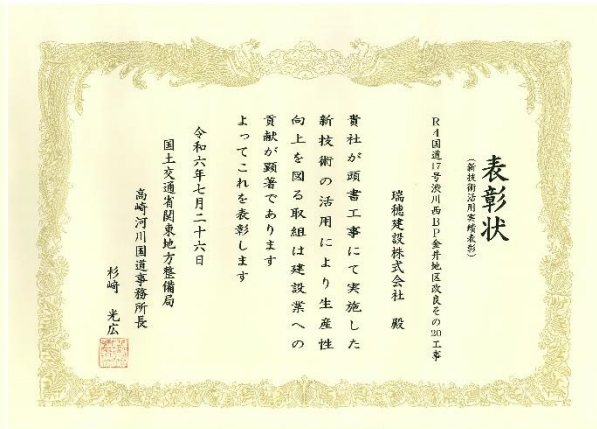 表彰状
(新技術活用実績表彰)
R4国道17号渋川西BP金井地区改良その20工事
瑞穂建設株式会社 殿
貴社が頭書工事にて実施した
新技術の活用により生産性
向上を図る取組は建設業への
貢献が顕著であります
よってこれを表彰します
令和六年七月二十六日
国土交通省関東地方整備局
高崎河川国道事務所長
杉崎 光広